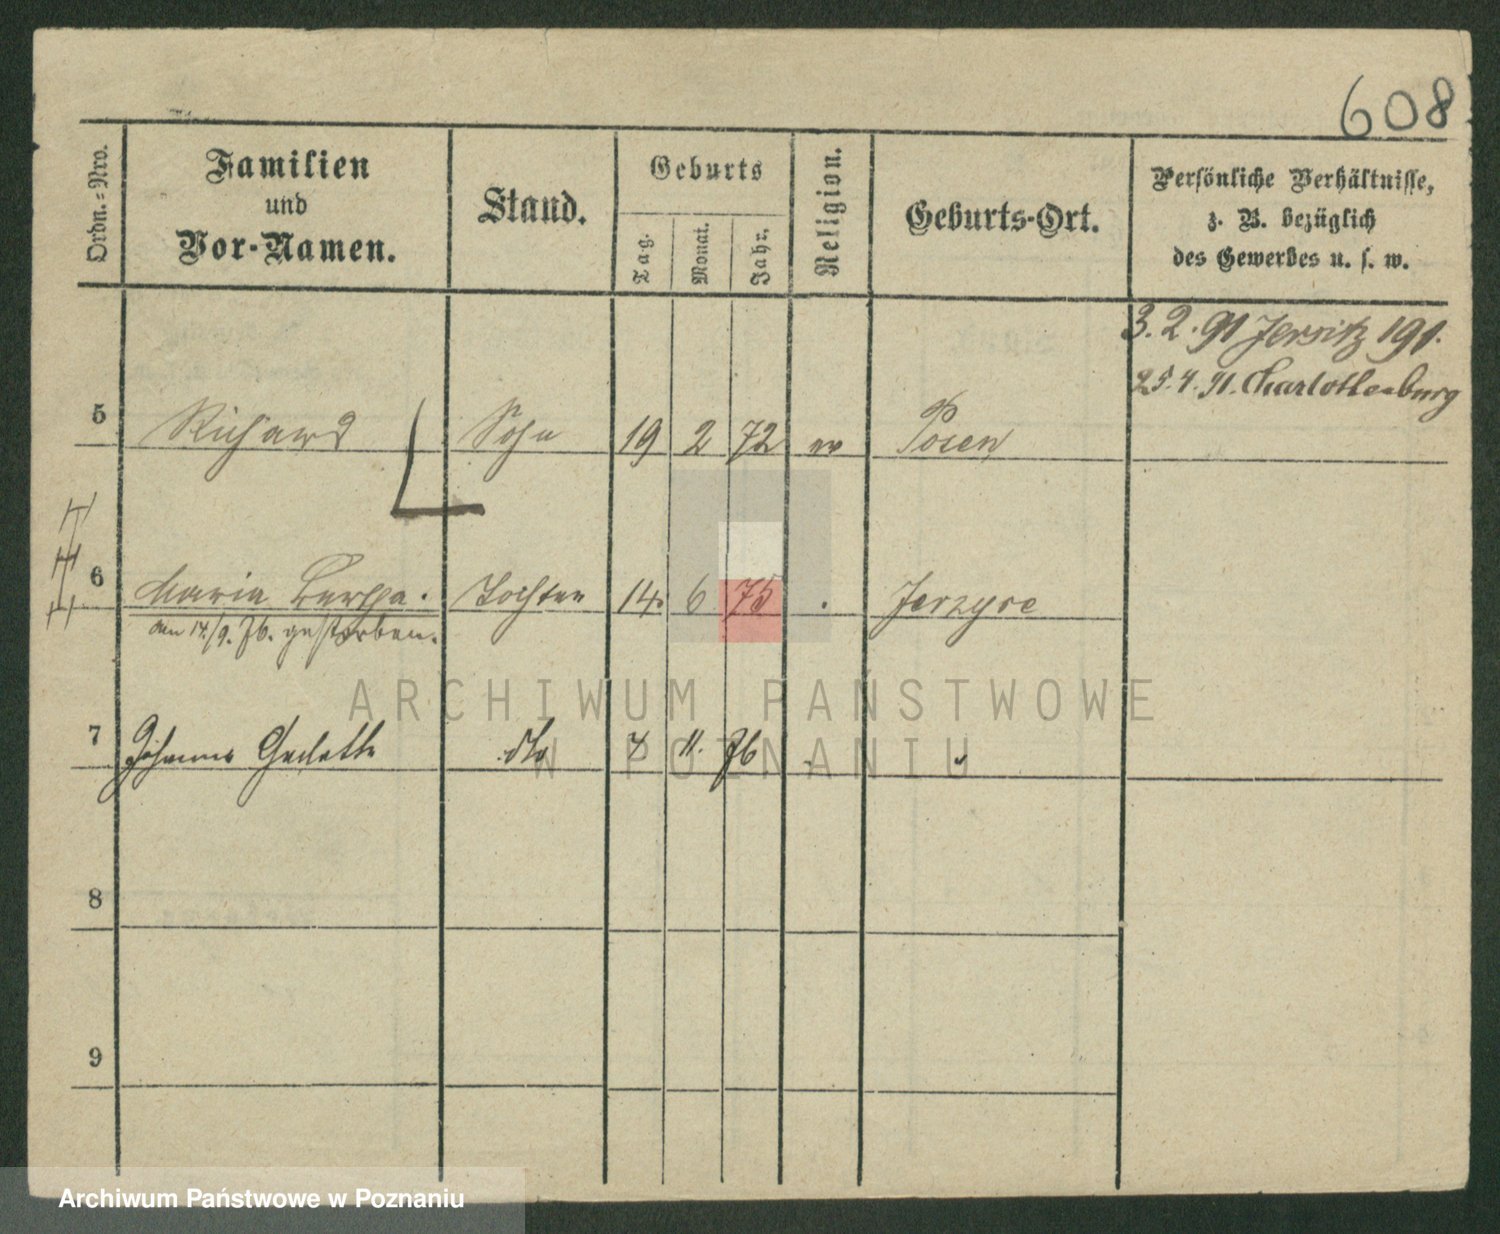 608
Ordn.-Nro.
Familien
und
Vor-Namen.
Stand.
Geburts
Tag.
Monat.
Jahr.
Religion.
Geburts-Ort.
Persönliche Verhältnisse,
z. B. bezüglich
des Gewerbes u. s. w.
3. 2. 91 Jersitz 191.
25. 4. 91. Charlottenburg
5 Richard Sohn 19 2 72 ev Posen
6 Maria Bertha. Tochter 14. 6 75 . Jerzyce
den 14./9. 76. gestorben.
7 Johanna dto 7 11. 76
8
9
ARCHIWUM PAŃSTWOWE
W POZNANIU
Archiwum Państwowe w Poznaniu